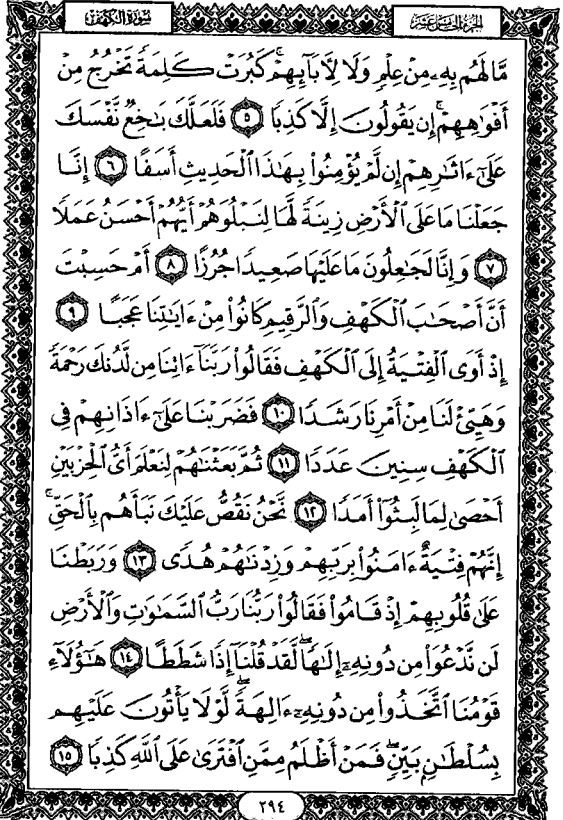 سُورَةُ الْكَهْفِ
الجزء الخامس عشر
مَّا لَهُم بِهِۦ مِنْ عِلْمٍ وَلَا لِأٓبَآئِهِمْ ۚ كَبُرَتْ كَلِمَةً تَخْرُجُ مِنْ
أَفْوَٰهِهِمْ ۚ إِن يَقُولُونَ إِلَّا كَذِبًا ٥ فَلَعَلَّكَ بَٰخِعٌ نَّفْسَكَ
عَلَىٰٓ ءَاثَٰرِهِمْ إِن لَّمْ يُؤْمِنُوا۟ بِهَٰذَا ٱلْحَدِيثِ أَسَفًا ٦ إِنَّا
جَعَلْنَا مَا عَلَى ٱلْأَرْضِ زِينَةً لَّهَا لِنَبْلُوَهُمْ أَيُّهُمْ أَحْسَنُ عَمَلًا
٧ وَإِنَّا لَجَٰعِلُونَ مَا عَلَيْهَا صَعِيدًا جُرُزًا ٨ أَمْ حَسِبْتَ
أَنَّ أَصْحَٰبَ ٱلْكَهْفِ وَٱلرَّقِيمِ كَانُوا۟ مِنْ ءَايَٰتِنَا عَجَبًا ٩
إِذْ أَوَى ٱلْفِتْيَةُ إِلَى ٱلْكَهْفِ فَقَالُوا۟ رَبَّنَآ ءَاتِنَا مِن لَّدُنكَ رَحْمَةً
وَهَيِّئْ لَنَا مِنْ أَمْرِنَا رَشَدًا ١٠ فَضَرَبْنَا عَلَىٰٓ ءَاذَانِهِمْ فِى
ٱلْكَهْفِ سِنِينَ عَدَدًا ١١ ثُمَّ بَعَثْنَٰهُمْ لِنَعْلَمَ أَىُّ ٱلْحِزْبَيْنِ
أَحْصَىٰ لِمَا لَبِثُوٓا۟ أَمَدًا ١٢ نَّحْنُ نَقُصُّ عَلَيْكَ نَبَأَهُم بِٱلْحَقِّ ۚ
إِنَّهُمْ فِتْيَةٌ ءَامَنُوا۟ بِرَبِّهِمْ وَزِدْنَٰهُمْ هُدًى ١٣ وَرَبَطْنَا
عَلَىٰ قُلُوبِهِمْ إِذْ قَامُوا۟ فَقَالُوا۟ رَبُّنَا رَبُّ ٱلسَّمَٰوَٰتِ وَٱلْأَرْضِ
لَن نَّدْعُوَا۟ مِن دُونِهِۦٓ إِلَٰهًا ۖ لَّقَدْ قُلْنَآ إِذًا شَطَطًا ١٤ هَٰٓؤُلَآءِ
قَوْمُنَا ٱتَّخَذُوا۟ مِن دُونِهِۦٓ ءَالِهَةً ۖ لَّوْلَا يَأْتُونَ عَلَيْهِم
بِسُلْطَٰنٍۭ بَيِّنٍ ۖ فَمَنْ أَظْلَمُ مِمَّنِ ٱفْتَرَىٰ عَلَى ٱللَّهِ كَذِبًا ١٥
٢٩٤